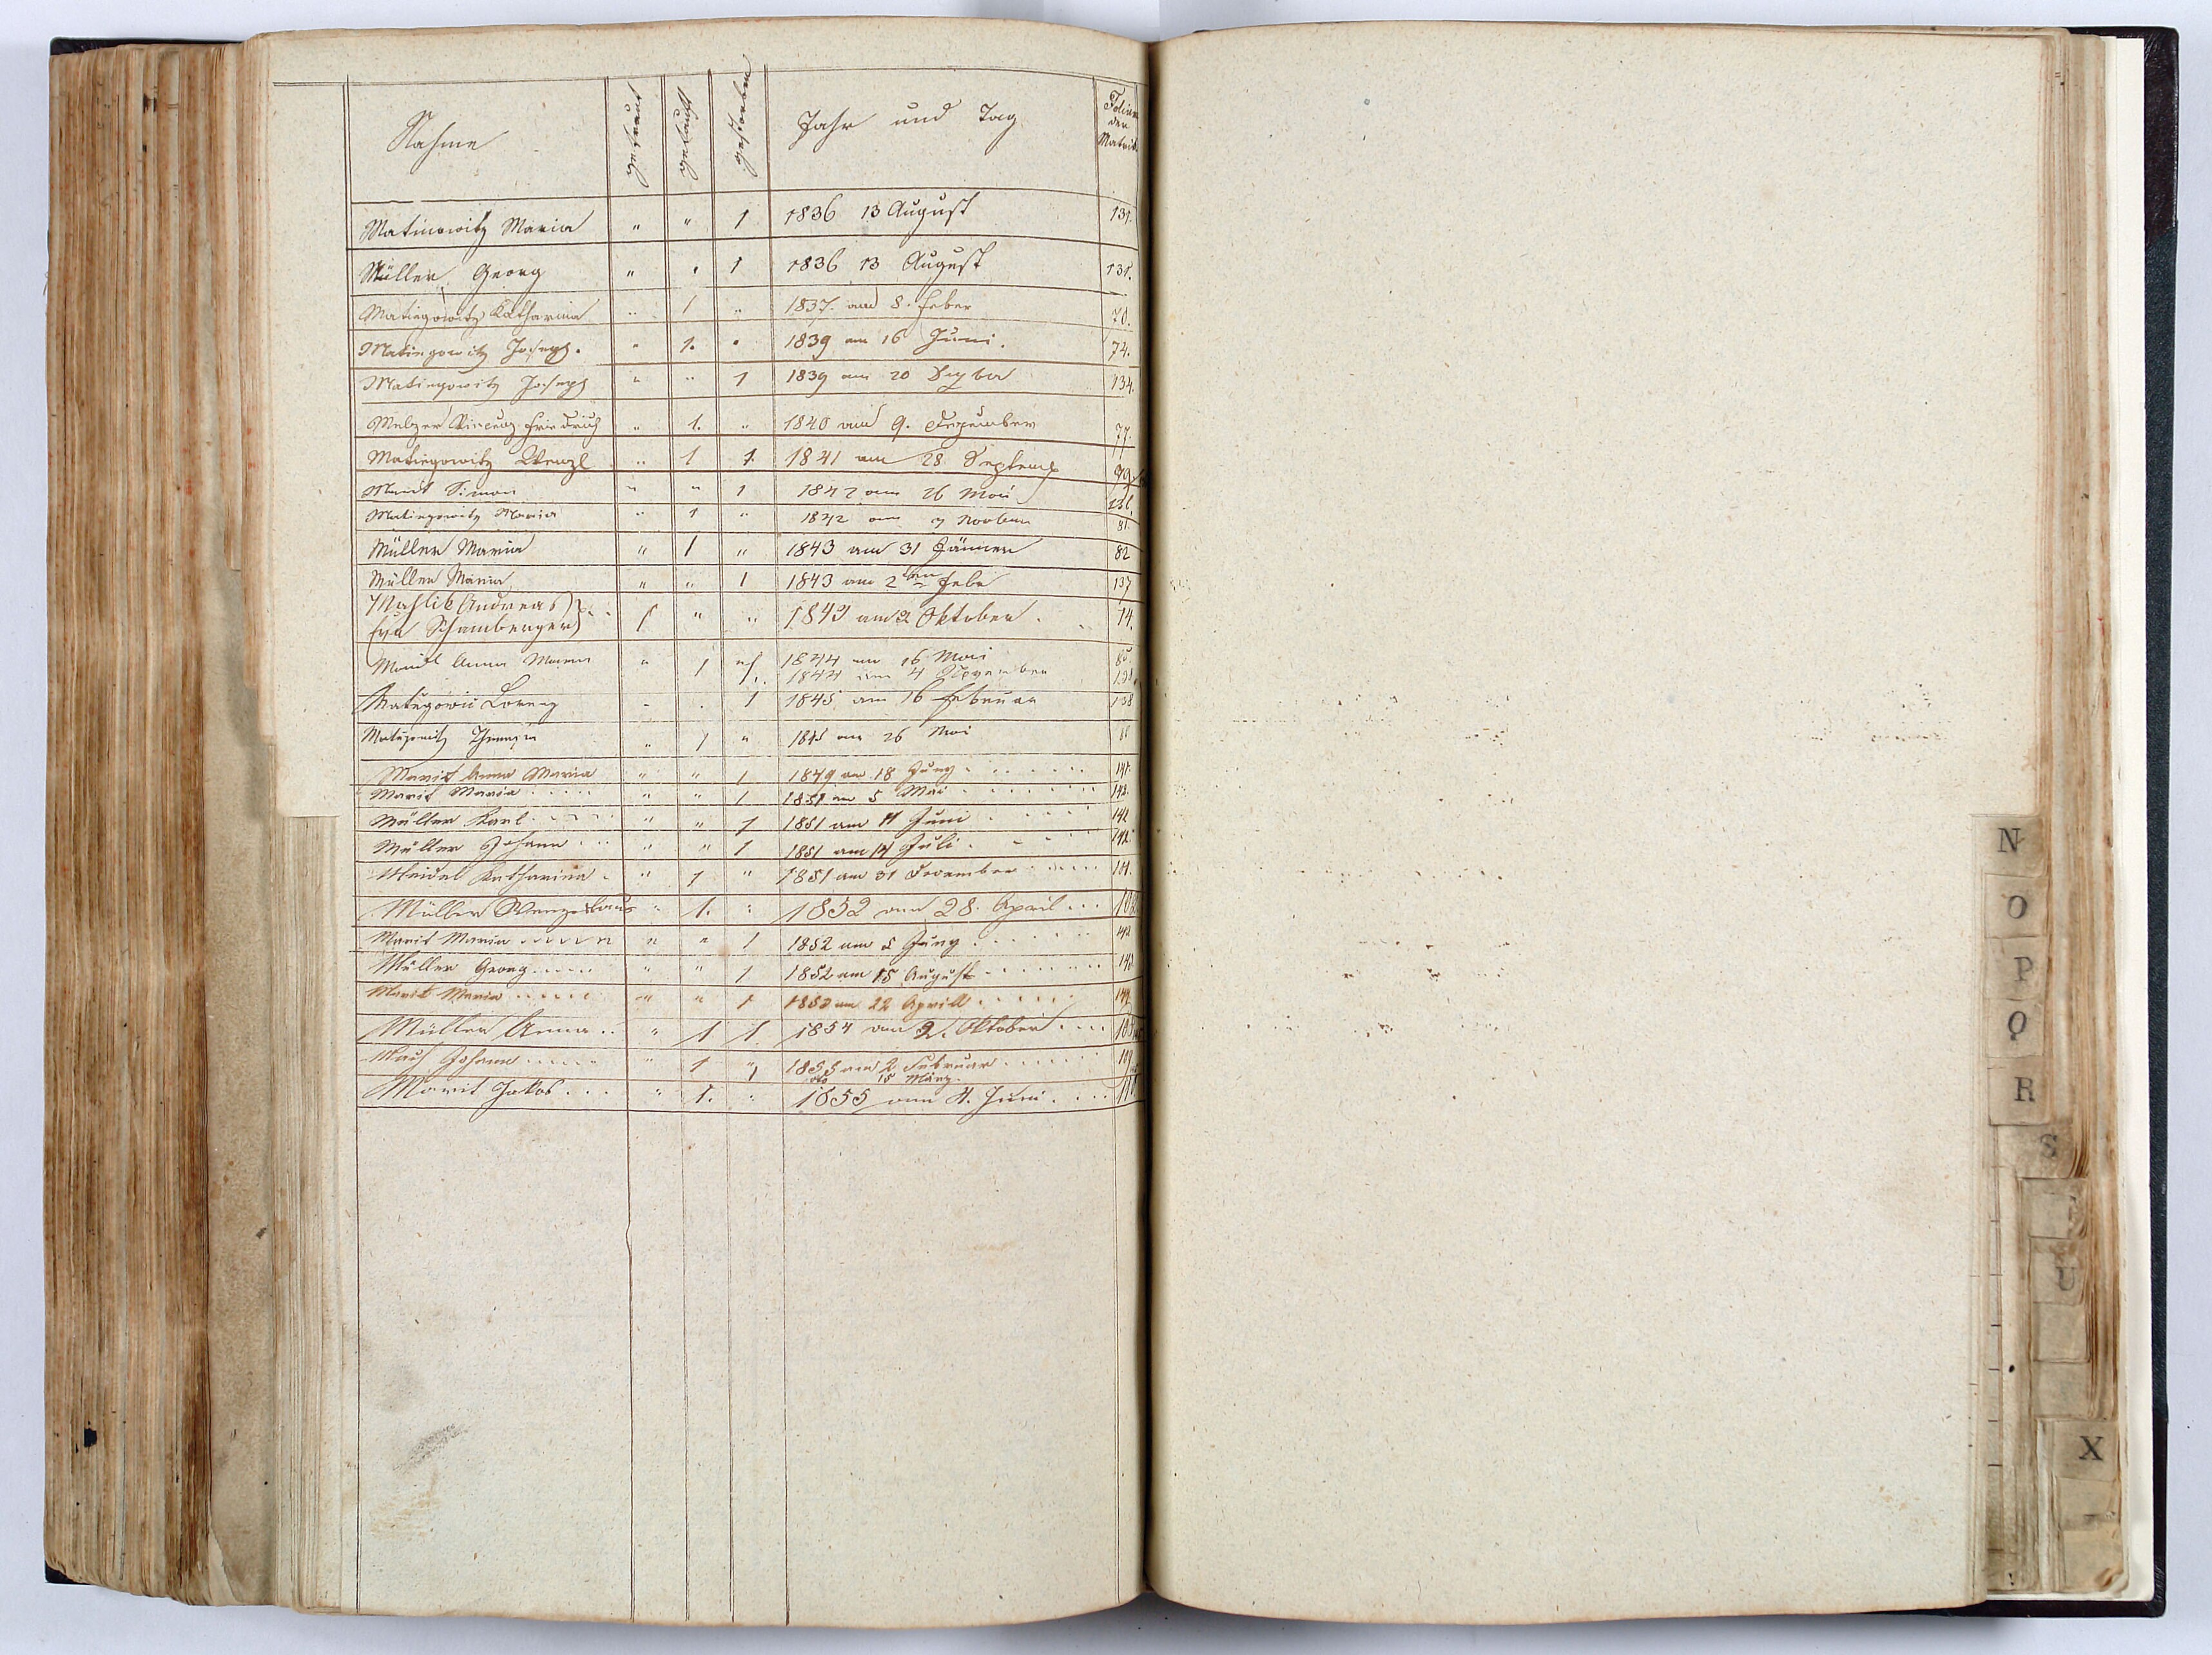 Nahme getraut getauft gestorben Jahr und Tag Folium der Matrik
Matinowitz Maria " " 1 1836 13 August 131.
Müller Georg " " 1 1836 13 August 131.
Matiegowitz Katharina " 1 " 1837. am 8. Feber 70.
Matiegowitz Joseph. " 1. " 1839 am 16 Juni. 74.
Matiegowitz Joseph " " 1 1839 am 20 134.
Melzer Vincenz Friedrich " 1. " 1840 am 9. Dezember 77.
Matiegowitz Wenzl " 1 1. 1841 am 28 Septemb
Simon " " 1 1842 am 26 Mai
Matiegowitz Maria " 1 " 1842 am 81.
Müller Maria " 1 " 1843 am 31 Jänner 82
Müller Maria " " 1 1843 am 2ten Febr 137
Maschlik Andreas
Eva Schamberger 1 " " 1843 am 2 Oktober . 14.
Anna Maria " 1 1844 am 16 Mai
1844 am 4 November
Lorenz 1 1845 am 16 Februar 138
" 1 " 1845 am 26 Mai
Marik Anna Maria " " 1 1849 am 18 Juny 141.
Marik Maria " " 1 1851 am 5 Mai 142.
Müller Karl " " 1 1851 am 11 Juni 142
Müller Johann " " 1 1851 am 14 Juli 142.
Katharina " 1 " 1851 am 31 December 101.
Müller Wenzeslaus " 1. " 1852 am 28. April
Marik Maria " " 1 1852 am 5 Juny 142
Müller Georg " " 1 1852 am 15 August 143
Marik Maria " " 1 1853 am 22 Aprill 144
Müller Anna " 1 1 1854 am 2. Oktober
Johann " 1 1855 am 2 Februar 109
15 März.
Marik Jakob " 1. " 1855 am 4. Juni.
N
O
P
Q
R
S
U
X